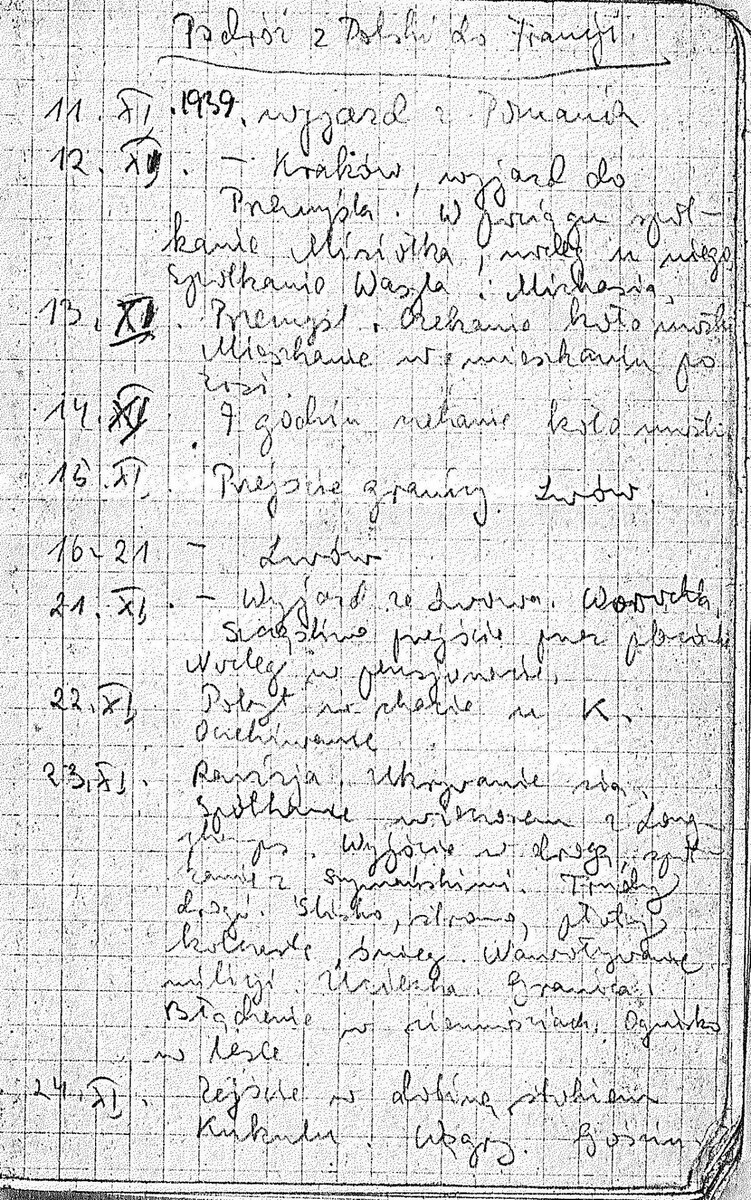 Podróż z Polski do Francji
11. XI. 1939. wyjazd z Poznania
12. XI. – Kraków, wyjazd do
Przemyśla. W pociągu spot-
kanie Misiołka, nocleg u niego
Spotkanie Waszla i Michasia.
13. XI. Przemyśl. Czekanie koło mostu
Mieszkanie w mieszkaniu po
14. XI. 9 godzin czekanie koło mostu
15. XI. Przejście granicy. Lwów.
16–21 – Lwów
21. XI. – Wyjazd ze Lwowa. Worochta,
Szczęśliwe przejście przez placówkę
Nocleg w pensjonacie.
22. XI. Pobyt w chacie u K.
Oczekiwanie
23. XI. Rewizja. Ukrywanie się.
Spotkanie wieczorem z
Wyjście w drogę, spot-
kanie z Szymańskimi. Trudy
drogi. Ślisko, stromo, płoty
kolczaste, śnieg. Nawoływanie
milicji. Ucieczka. Granica.
Błądzenie w ciemnościach. Ognisko
w lesie
24. XI. Zejście w dolinę, stokiem
Kukulu. Węgry. Gościn